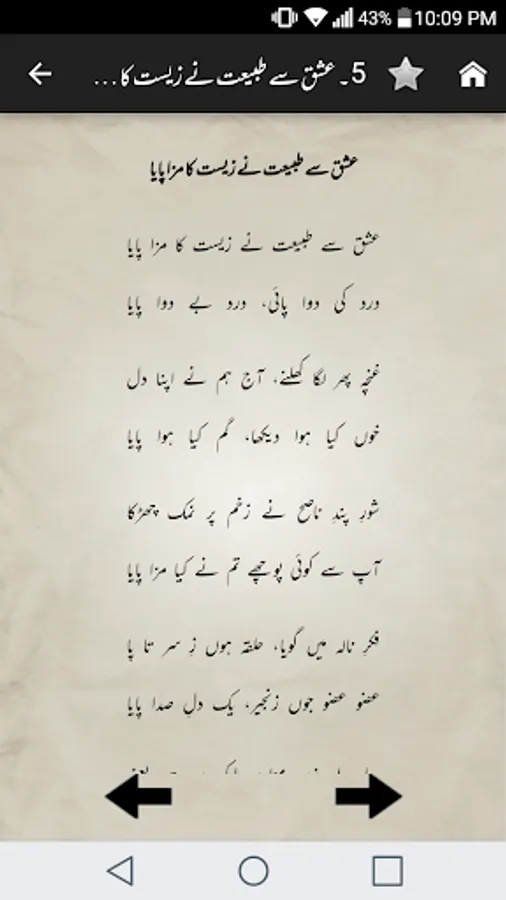 43% 10:09 PM
5۔ عشق سے طبیعت نے زیست کا...
عشق سے طبیعت نے زیست کا مزا پایا
عشق سے طبیعت نے زیست کا مزا پایا
درد کی دوا پائی، درد بے دوا پایا
غنچہ پھر لگا کھلنے، آج ہم نے اپنا دل
خوں کیا ہوا دیکھا، گم کیا ہوا پایا
شورِ پندِ ناصح نے زخم پر نمک چھڑکا
آپ سے کوئی پوچھے تم نے کیا مزا پایا
فکرِ نالہ میں گویا، حلقہ ہوں زِ سر تا پا
عضو عضو جوں زنجیر، یک دلِ صدا پایا